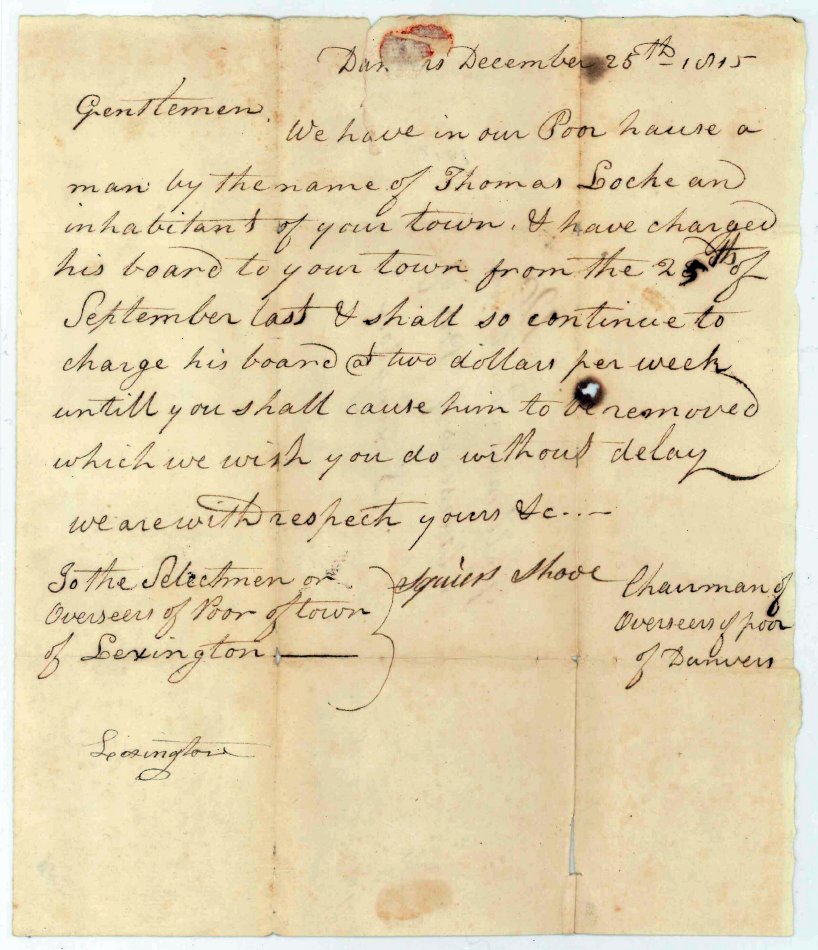 Dan rs December 25th 1815
Gentlemen.
We have in our Poor house a
man by the name of Thomas Locke and
inhabitant of your town. & have charged
his board to your town from the 25th of
September last & shall so continue to
charge his board at two dollars per week
untill you shall cause him to be removed
which we wish you do without delay
we are with respect yours &c...
To the Selectmen or
Overseers of Poor of town
of Lexington.
Squiers Shove
Chairman of
Overseers of poor
of Danvers
Lexington